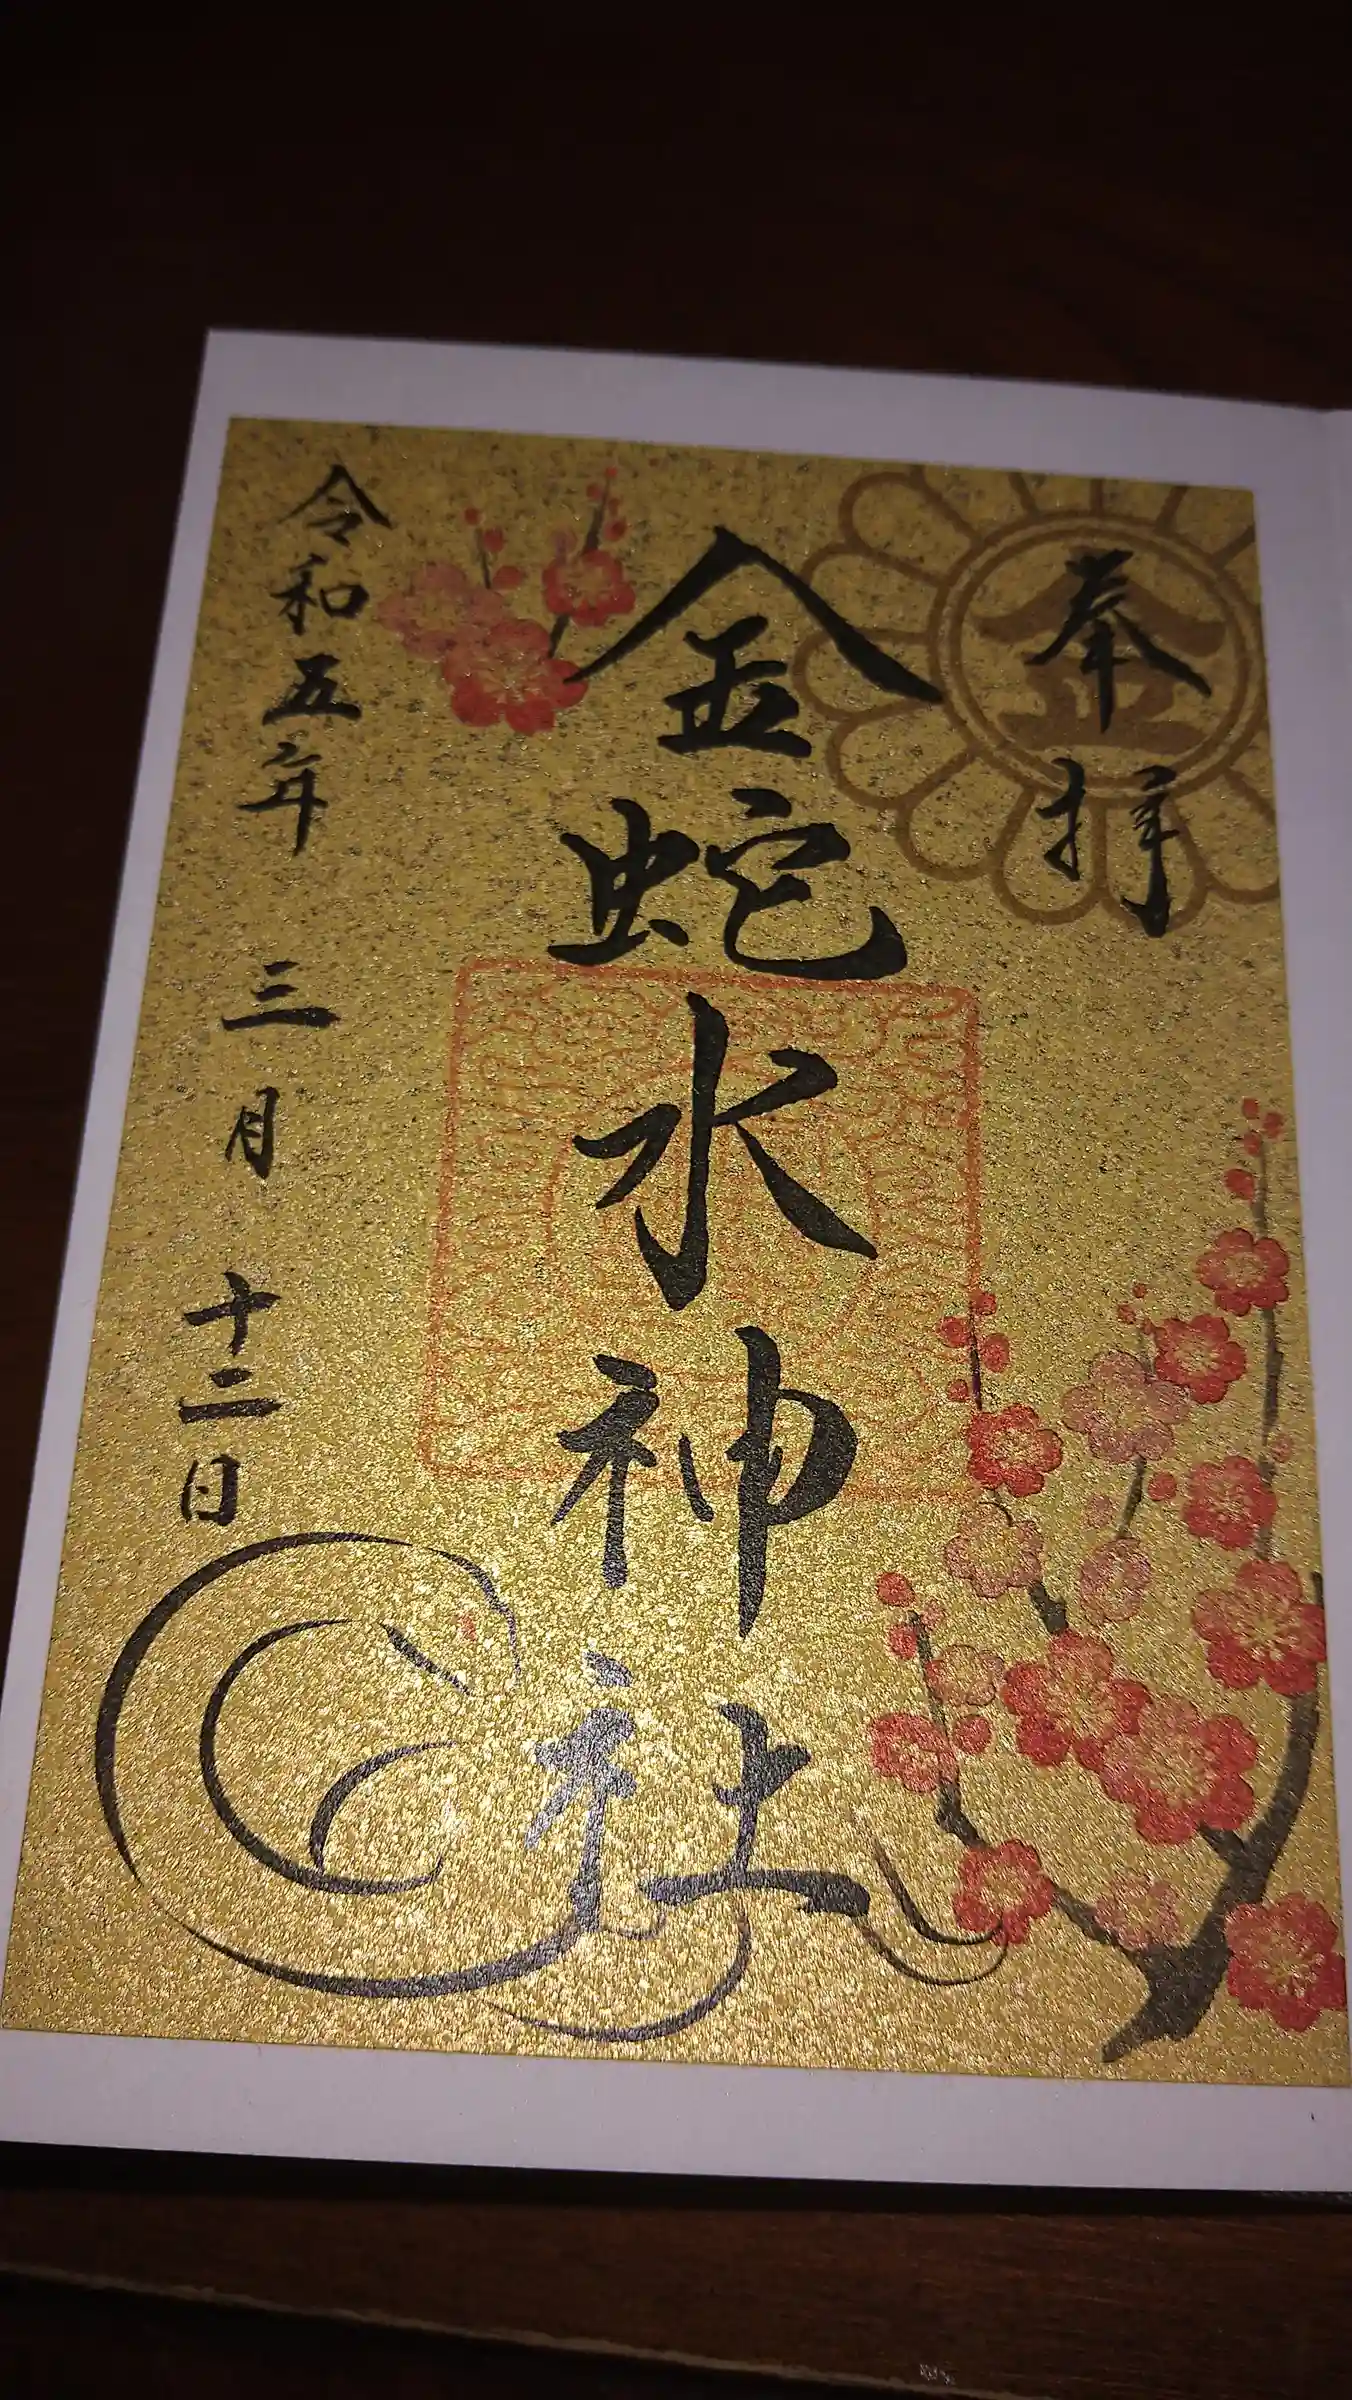 奉拝
金
金蛇水神社
令和五年三月十二日